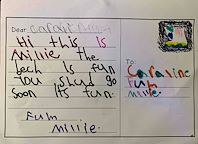 Dear
Hi this is
Millie the
bech is fun
You shud go
Soon its fun.
Fum
Millie.
To:
Caroline
Fum
Millie.